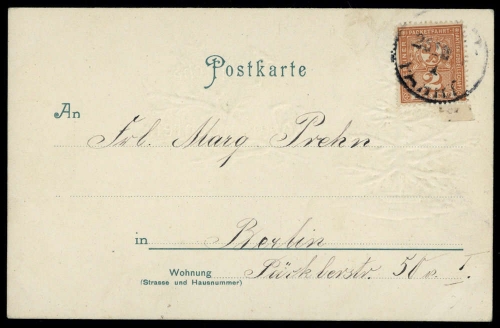 PACKETFAHRT
2
Postkarte
An
Frl. Marg. Prehn
in Berlin
Wohnung
(Strasse und Hausnummer)
Pücklerstr. 50 a. I.